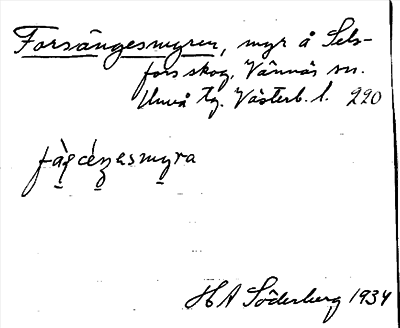 Forsängesmyren, myr å Sels-
fors skog, Vännäs sn.
Umeå tg. Västerb. l. 220
HA Söderberg 1934